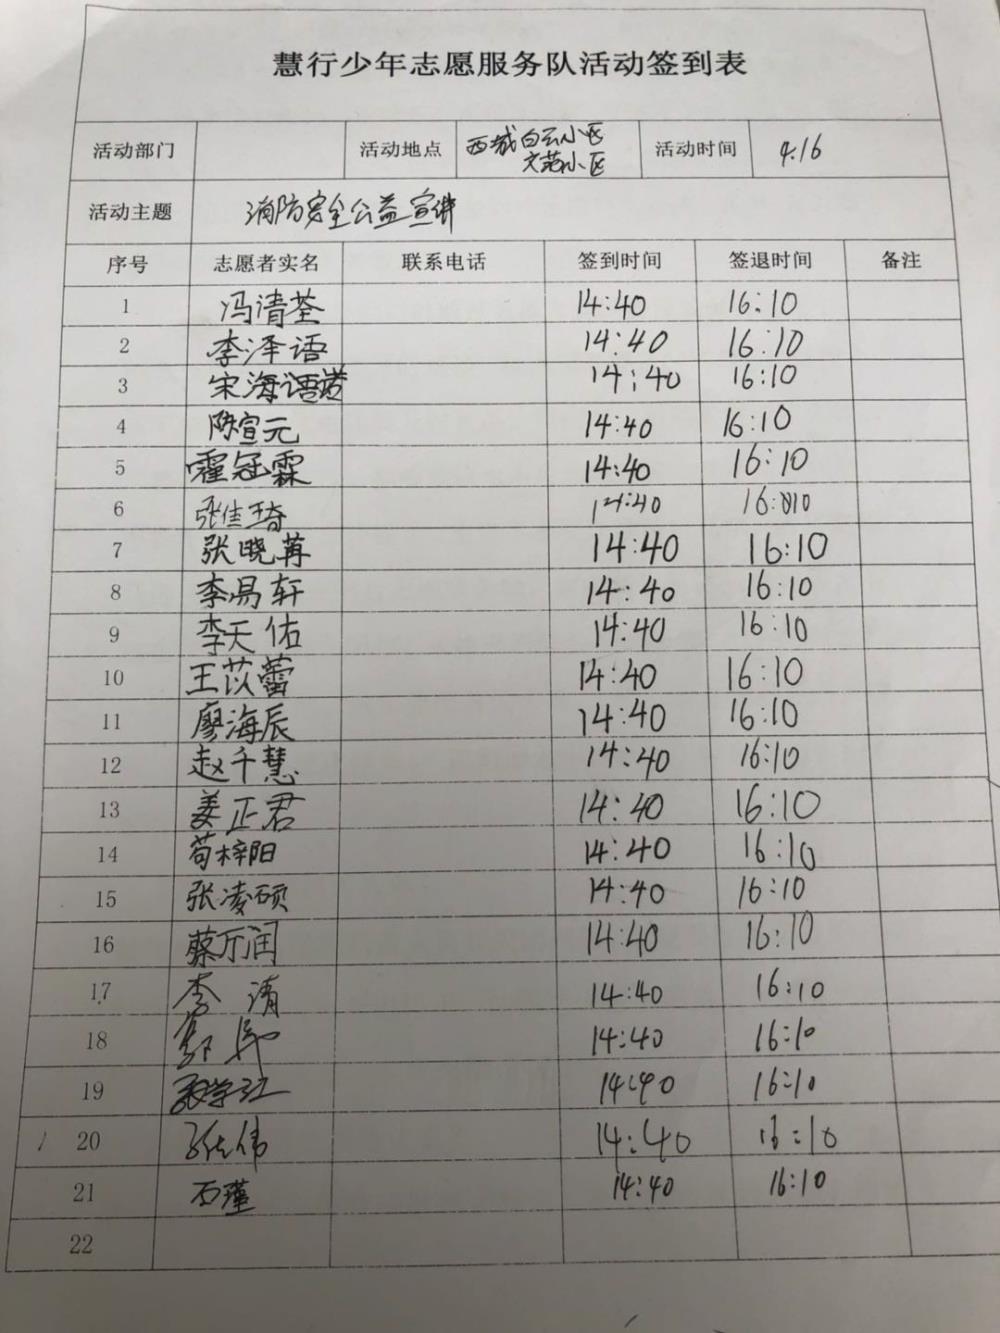 慧行少年志愿服务队活动签到表
活动部门 活动地点 西城白云小区 文苑小区 活动时间 4.16
活动主题 消防安全公益宣讲
序号 志愿者实名 联系电话 签到时间 签退时间 备注
1 冯清荃 14:40 16:10
2 李泽语 14:40 16:10
3 宋海语 14:40 16:10
4 陈宣元 14:40 16:10
5 霍冠霖 14:40 16:10
6 张佳琦 14:40 16:10
7 张晓苒 14:40 16:10
8 李易轩 14:40 16:10
9 李天佑 14:40 16:10
10 王苡蕾 14:40 16:10
11 廖海辰 14:40 16:10
12 赵千慧 14:40 16:10
13 姜正君 14:40 16:10
14 苟梓阳 14:40 16:10
15 张凌硕 14:40 16:10
16 蔡万润 14:40 16:10
17 李清 14:40 16:10
18 14:40 16:10
19 14:40 16:10
20 伟 14:40 16:10
21 石瑾 14:40 16:10
22